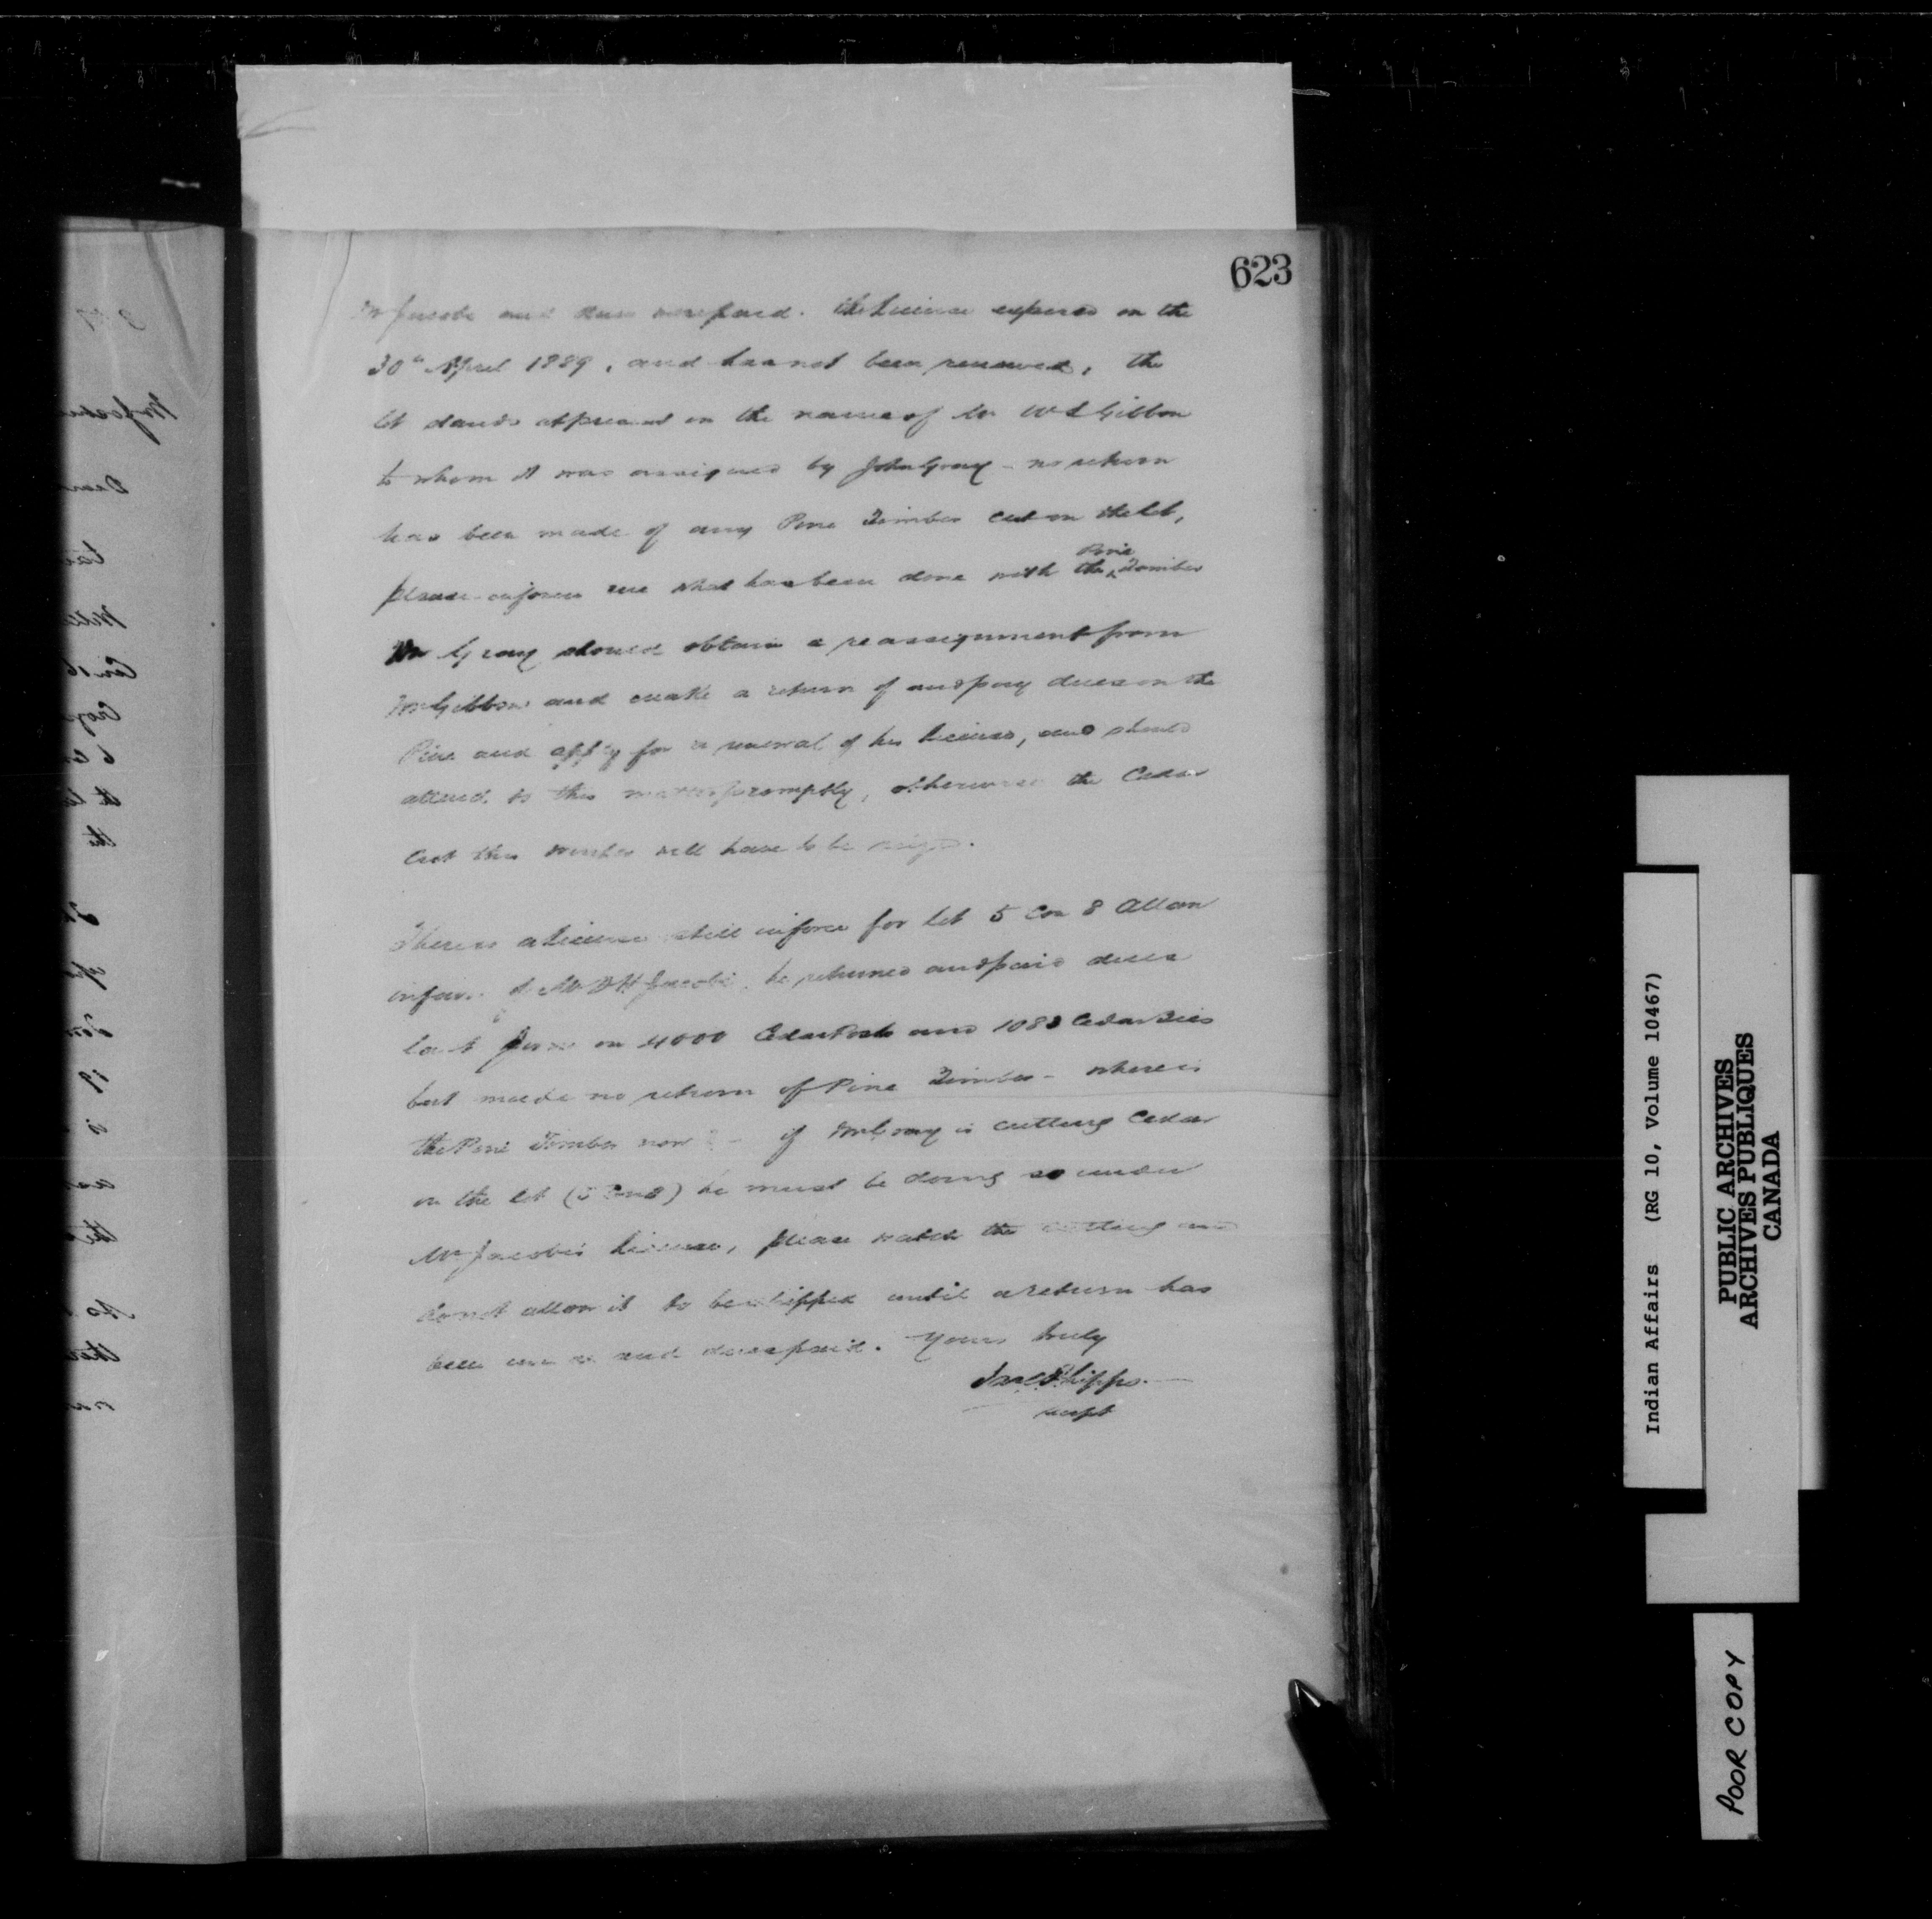 623
Mr Jacobs and dues were paid. The License expired on the
30th April 1889, and has not been renewed, the
lot stands at present in the name of Mr W L Gibbon
to whom it was assigned by John Gray - no return
has been made of any Pine Timber cut on the lot,
please inform me what has been done with the Pine Timber
Mr Gray should obtain a reassignment from
Mr Gibbon and make a return of and pay dues on the
Pine and apply for a renewal of his License, and should
attend to this matter promptly, otherwise the Cedar
Cut this winter will have to be seized.
There is a License still in force for lot 5 Con 8 Allan
in favor of Mr D H Jacobs, he returned and paid dues
last June on 4000 Cedar Posts and 1083 Cedar Ties
but made no return of Pine Timber - where is
the Pine Timber now ? - if Mr Gray is cutting Cedar
on the lot (5 Con 8) he must be doing so under
Mr Jacobs's License, please watch the cutting and
do not allow it to be shipped until a return has
been made and dues paid. Yours truly
Jas C Phipps
supt
Indian Affairs (RG 10, Volume 10467)
PUBLIC ARCHIVES
ARCHIVES PUBLIQUES
CANADA
POOR COPY